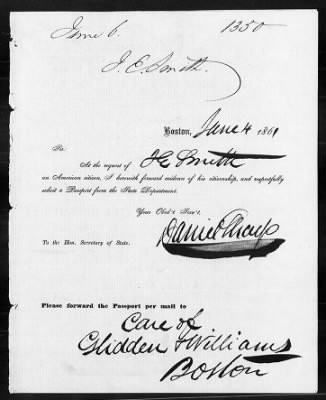 June 6. 1350
J. E. Smith.
Boston, June 4 1861
Sir:
At the request of J E Smith
an American citizen, I herewith forward evidence of his citizenship, and respectfully
solicit a Passport from the State Department.
Your Obd't Serv't.
Daniel Sharp
To the Hon. Secretary of State.
Please forward the Passport per mail to
Care of
Glidden & Williams
Boston